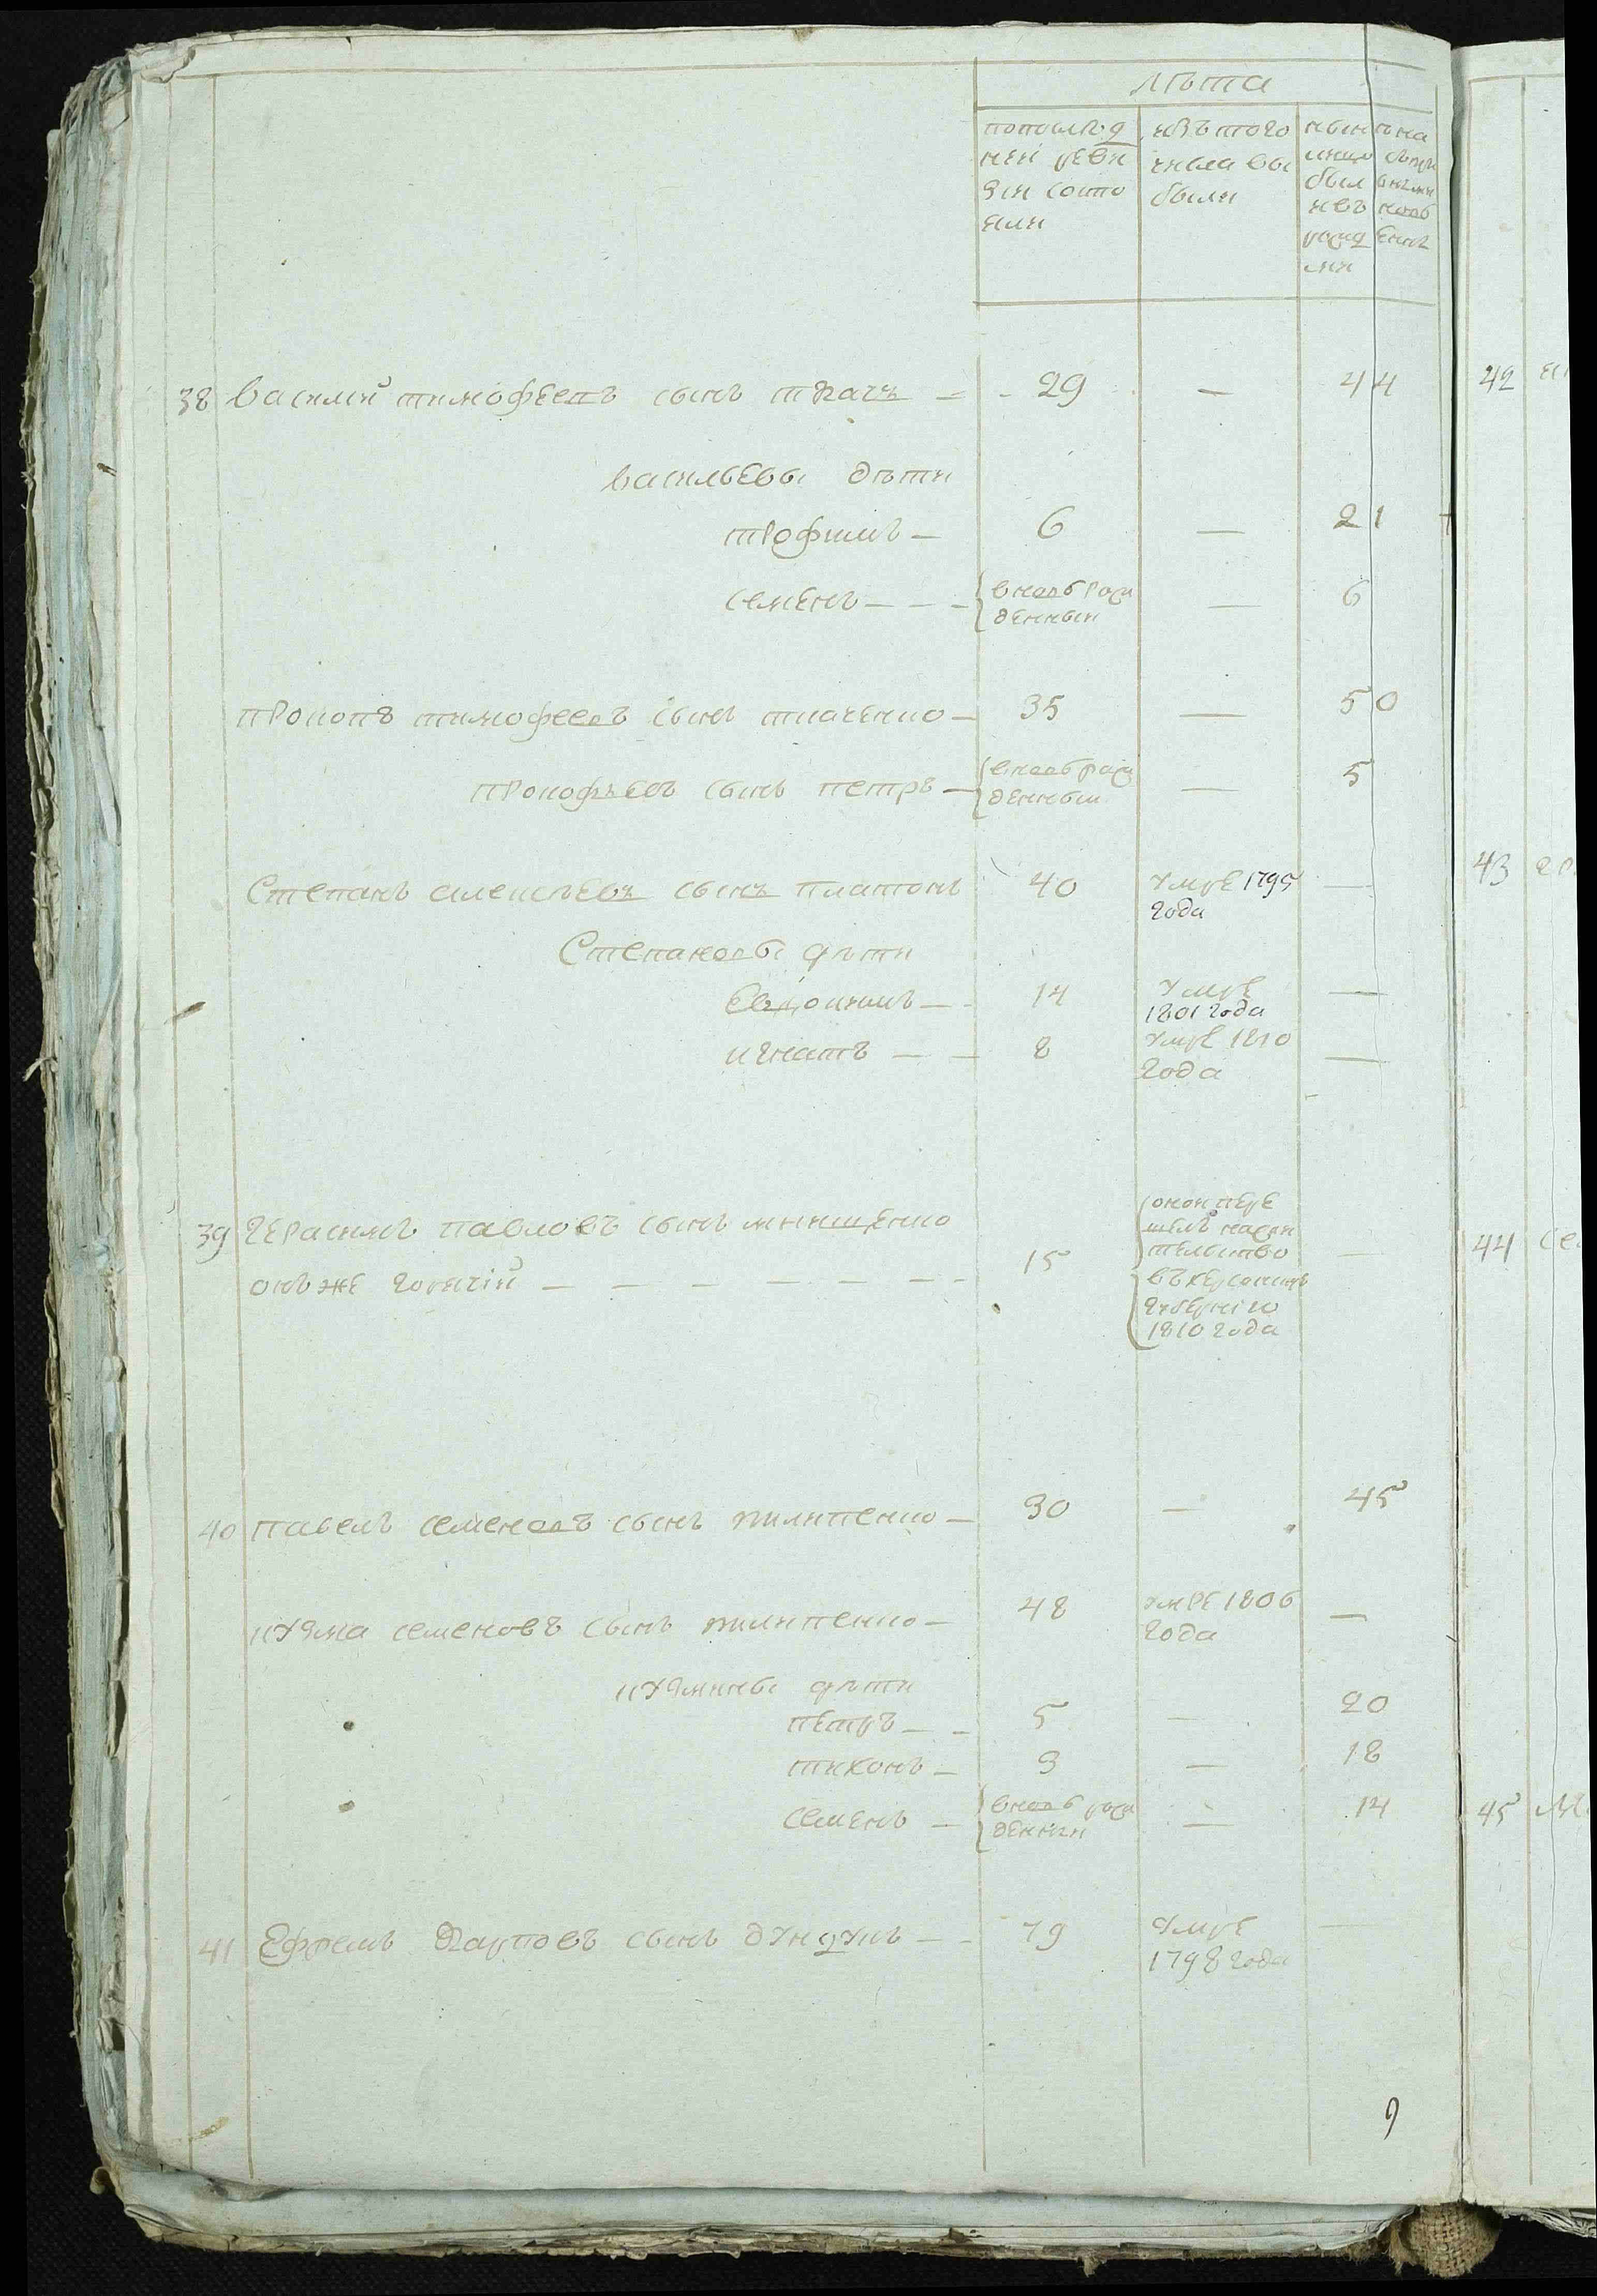 лѣта
попослѣд изъ того нынѣ на
ней реви числа вы лицо
зіи состо были был
яли
38 василий тимофеевъ сынъ ткачъ — 29 — 44
васильевы дѣти
трофимъ — 6 — 21
семенъ — — — вновь рож — 6
денный
прокопъ тимофеевъ сынъ ткаченко — 35 — 50
прокофьевъ сынъ петръ — вновь рож — 5
денный
Степанъ алексѣевъ сынъ платонъ 40 умре 1795 —
года
Степановы дѣти
Евдокимъ — 14 умре —
1801 года
игнатъ — — 8 умре 1810 —
года
39 герасимъ павловъ сынъ онои пере
шелъ на жи
онъ же горячій — — — — — — 15 тельство —
въ херсонскую
губернію
1810 года
40 павелъ семеновъ сынъ пилипенко — 30 — 45
кузма семеновъ сынъ пилипенко — 48 умре 1806 —
года
кузмины дѣти
петръ — — 5 — 20
тихонъ — 3 — 18
семенъ — вновь рож — 14
деннын
41 Ефремъ Карповъ сынъ дундукъ — — 79 умре —
1798 года
9
42
43
44 се
45